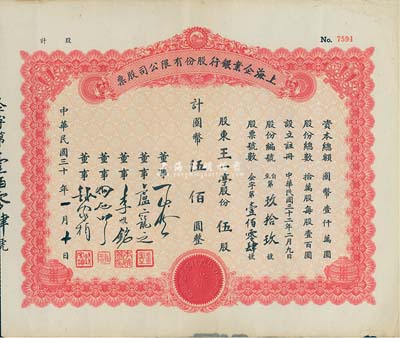 計 股
No. 7591
上海企業銀行股份有限公司股票
資本總額 國幣壹仟萬圓
股份總數 拾萬股每股壹百圓
設立註冊 中華民國三十二年二月九日
股份編號 自第玖拾玖號
股票號數 企字第壹佰零肆號
股東王 亭股份 伍股
計國幣 伍佰 圓整
董事
董事
董事 李
董事
董事
中華民國三十 年一月十日